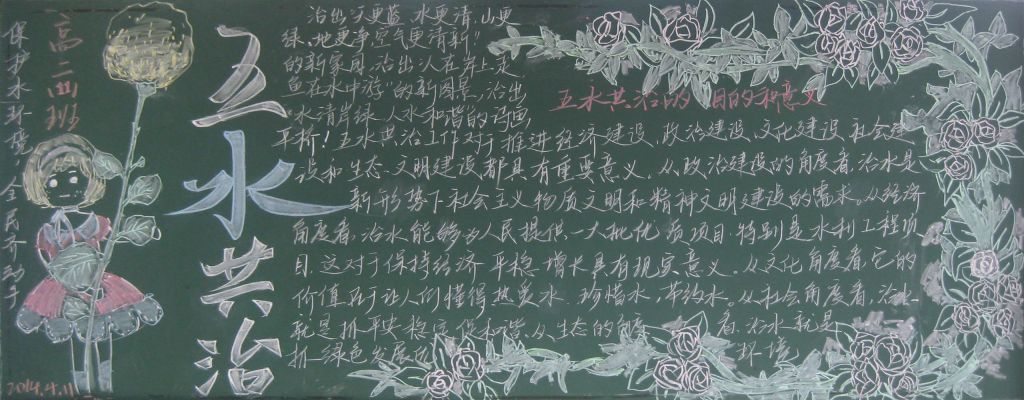 保护水环境 全民齐动手
高二四班
2014.4.11
五水共治
治出"天更蓝、水更清、山更
绿、地更净、空气更清新"
的新家园，治出"人在岸上走，
鱼在水中游"的新图景，治出
"水清岸绿、人水和谐"的诗画
五水共治的 目的和意义
平桥！五水共治工作对于推进经济建设、政治建设、文化建设、社会建
设和生态文明建设都具有重要意义。从政治建设的角度看，治水是
新形势下社会主义物质文明和精神文明建设的需求。从经济
角度看，治水能够为人民提供一大批优质项目，特别是水利工程项
目，这对于保持经济平稳增长具有现实意义。从文化角度看，它的
价值在于让人们懂得热爱水、珍惜水、节约水。从社会角度看，治水
就是抓平安、稳定、保和谐。从生态的角度 看，治水就是
抓绿色发展 环境